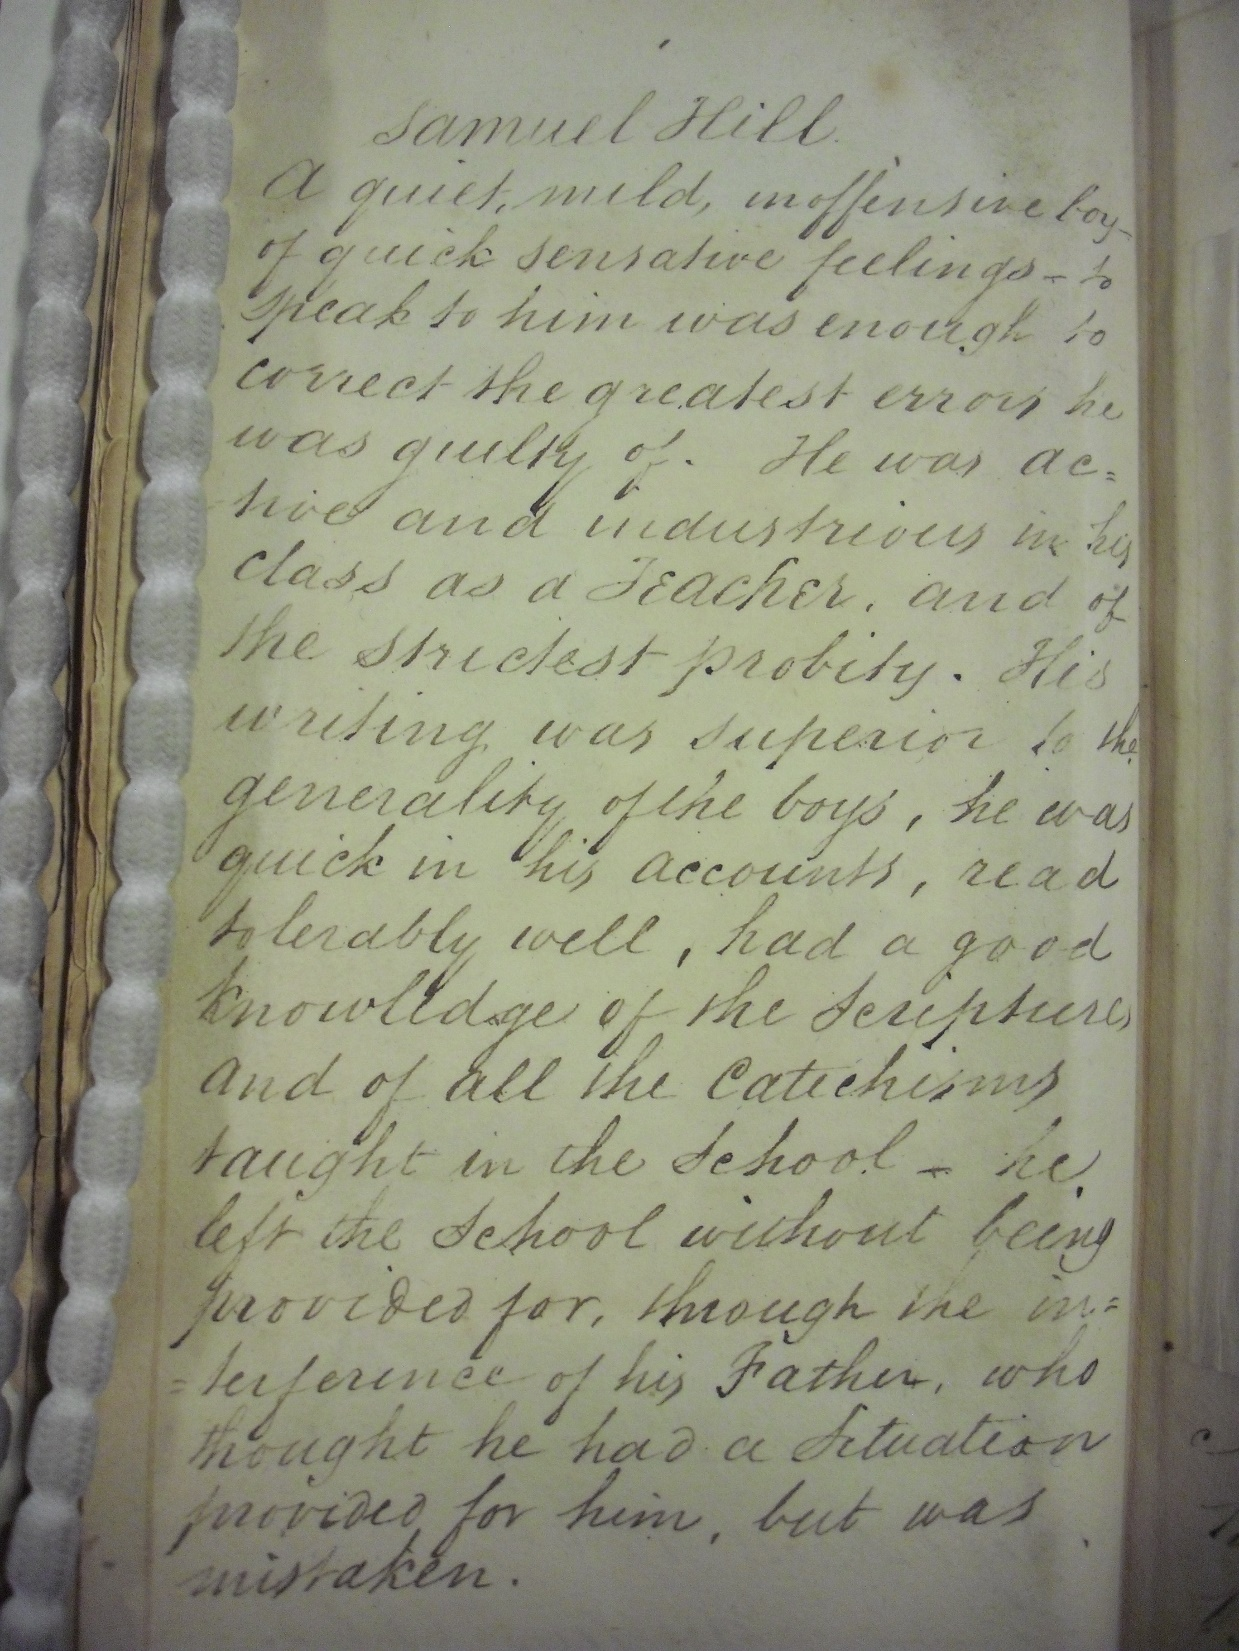 Samuel Hill.
A quiet, mild, inoffensive boy-
of quick sensative feelings - to
speak to him was enough to
correct the greatest errors he
was guilty of. He was ac=
tive and industrious in his
class as a Teacher, and of
the strictest probity. His
writing was superior to the
generality of the boys, he was
quick in his accounts, read
tolerably well, had a good
knowledge of the Scriptures
and of all the Catechisms
taught in the School - he
left the School without being
provided for, through the in=
=terference of his Father, who
thought he had a Situation
provided for him, but was
mistaken.